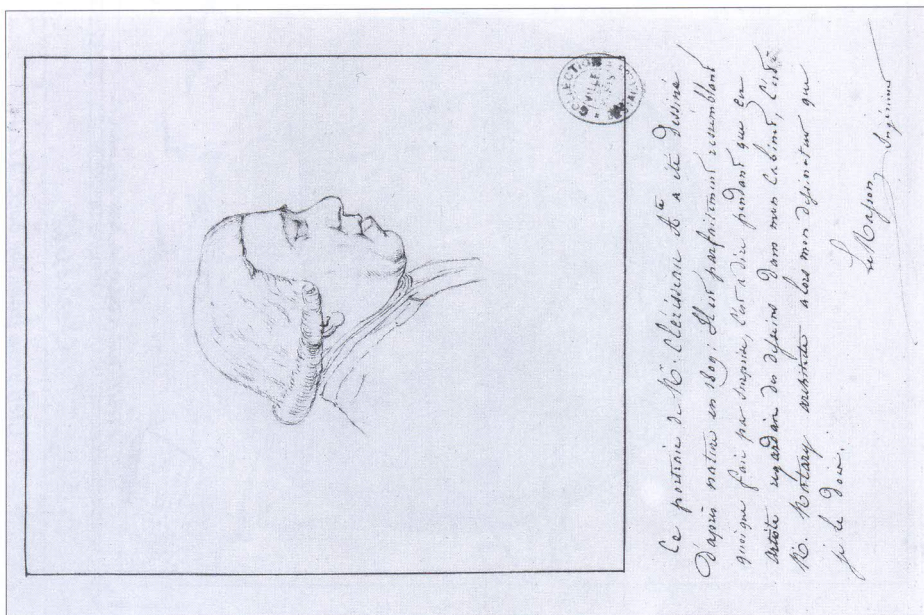 COLLECTION
VILLE
Ce portrait de Mr. Clérisseau Ate a été dessiné
d'après nature en 1809. Il est parfaitement ressemblant
quoique fait par surprise, c'est à dire pendant que cu
artiste regardait des dessins dans mon Cabinet, C'est à
M. Notary architecte alors mon dessinateur que
je le dois.
LeMasson Ingénieur